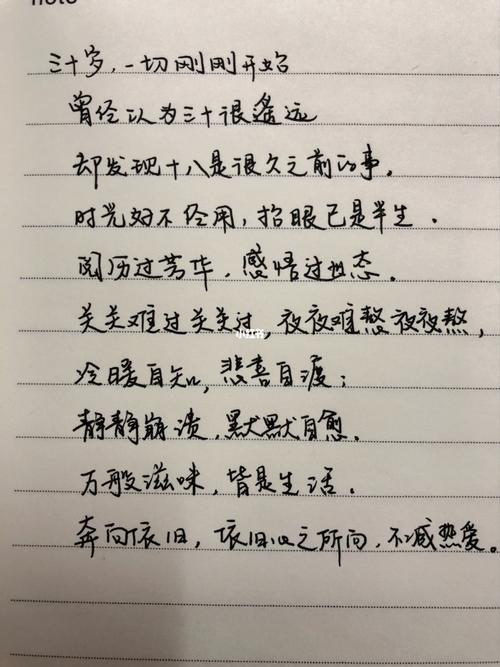 note
三十岁，一切刚刚开始
曾经以为三十很遥远
却发现十八是很久之前的事。
时光好不经用，抬眼已是半生。
阅历过芳华，感悟过世态。
关关难过关关过，夜夜难熬夜夜熬，
小红书
冷暖自知，悲喜自渡；
静静崩溃，默默自愈。
万般滋味，皆是生活。
奔向依旧，依旧心之所向，不减热爱。